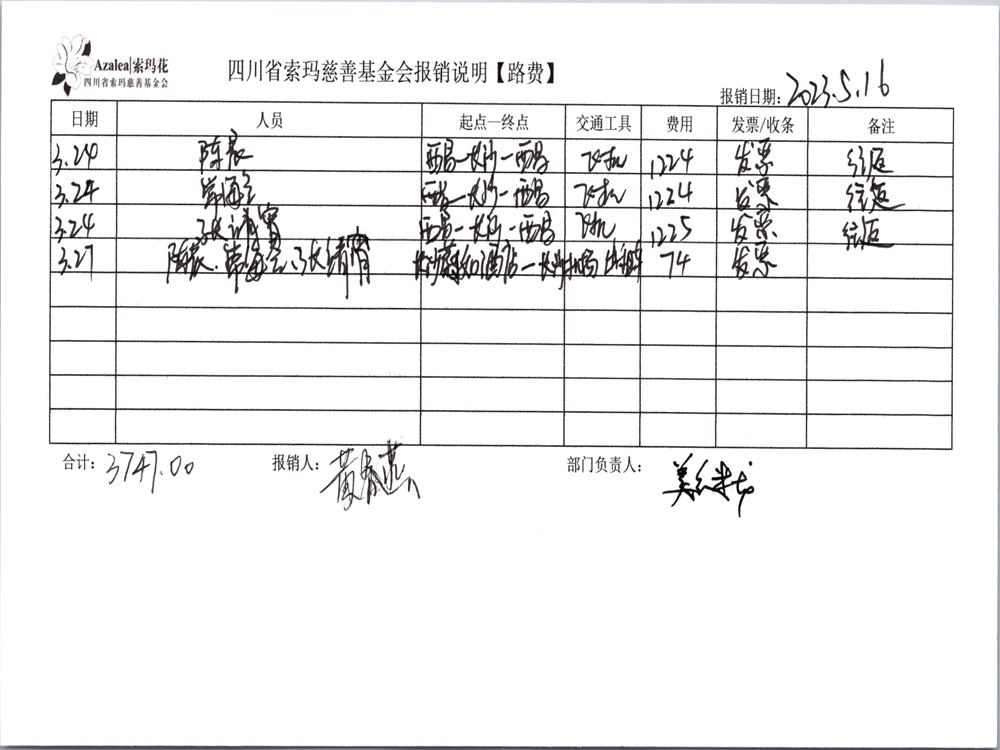 Azalea|索玛花
四川省索玛慈善基金会
四川省索玛慈善基金会报销说明【路费】
报销日期：2023.5.16
日期 人员 起点—终点 交通工具 费用 发票/收条 备注
3.24 陈辰 西昌—长沙—西昌 飞机 1224 发票 往返
3.24 西昌—长沙—西昌 飞机 1224 发票 往返
3.24 张清霄 西昌—长沙—西昌 飞机 1225 发票 往返
3.27 陈辰、 长沙 酒店—长沙机场 出租车 74 发票
合计：3747.00 报销人：黄春燕 部门负责人：